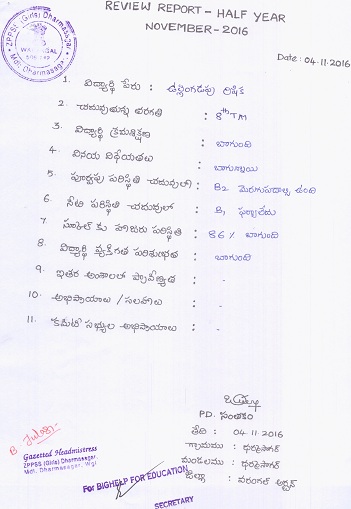 REVIEW REPORT - HALF YEAR
NOVEMBER - 2016
ZPPSS (Girls) Dharmasagar
Mdl. Dharmasagar
Date : 04-11-2016
1. విద్యార్థి పేరు :
2. చదువుతున్న తరగతి : 8th TM
3. విద్యార్థి క్రమశిక్షణ : బాగుంది
4. వినయ విధేయతలు : బాగున్నాయి
5. పూర్వపు పరిస్థితి చదువులో : B2
6. నేటి పరిస్థితి చదువులో : B1
7. స్కూల్ కు హాజరు పరిస్థితి : 86% బాగుంది
8. విద్యార్థి వ్యక్తిగత పరిశుభ్రత : బాగుంది
9. ఇతర అంశాలలో ప్రావీణ్యత : -
10. అభిప్రాయాలు / సలహాలు : -
11. కమిటీ సభ్యుల అభిప్రాయాలు : -
PD. సంతకం
తేది : 04-11-2016
గ్రామము : ధర్మసాగర్
మండలము : ధర్మసాగర్
జిల్లా : వరంగల్ అర్బన్
Gazetted Headmistress
ZPPSS (Girls) Dharmasagar
Mdl. Dharmasagar, Wgl
For BIGHELP FOR EDUCATION
SECRETARY